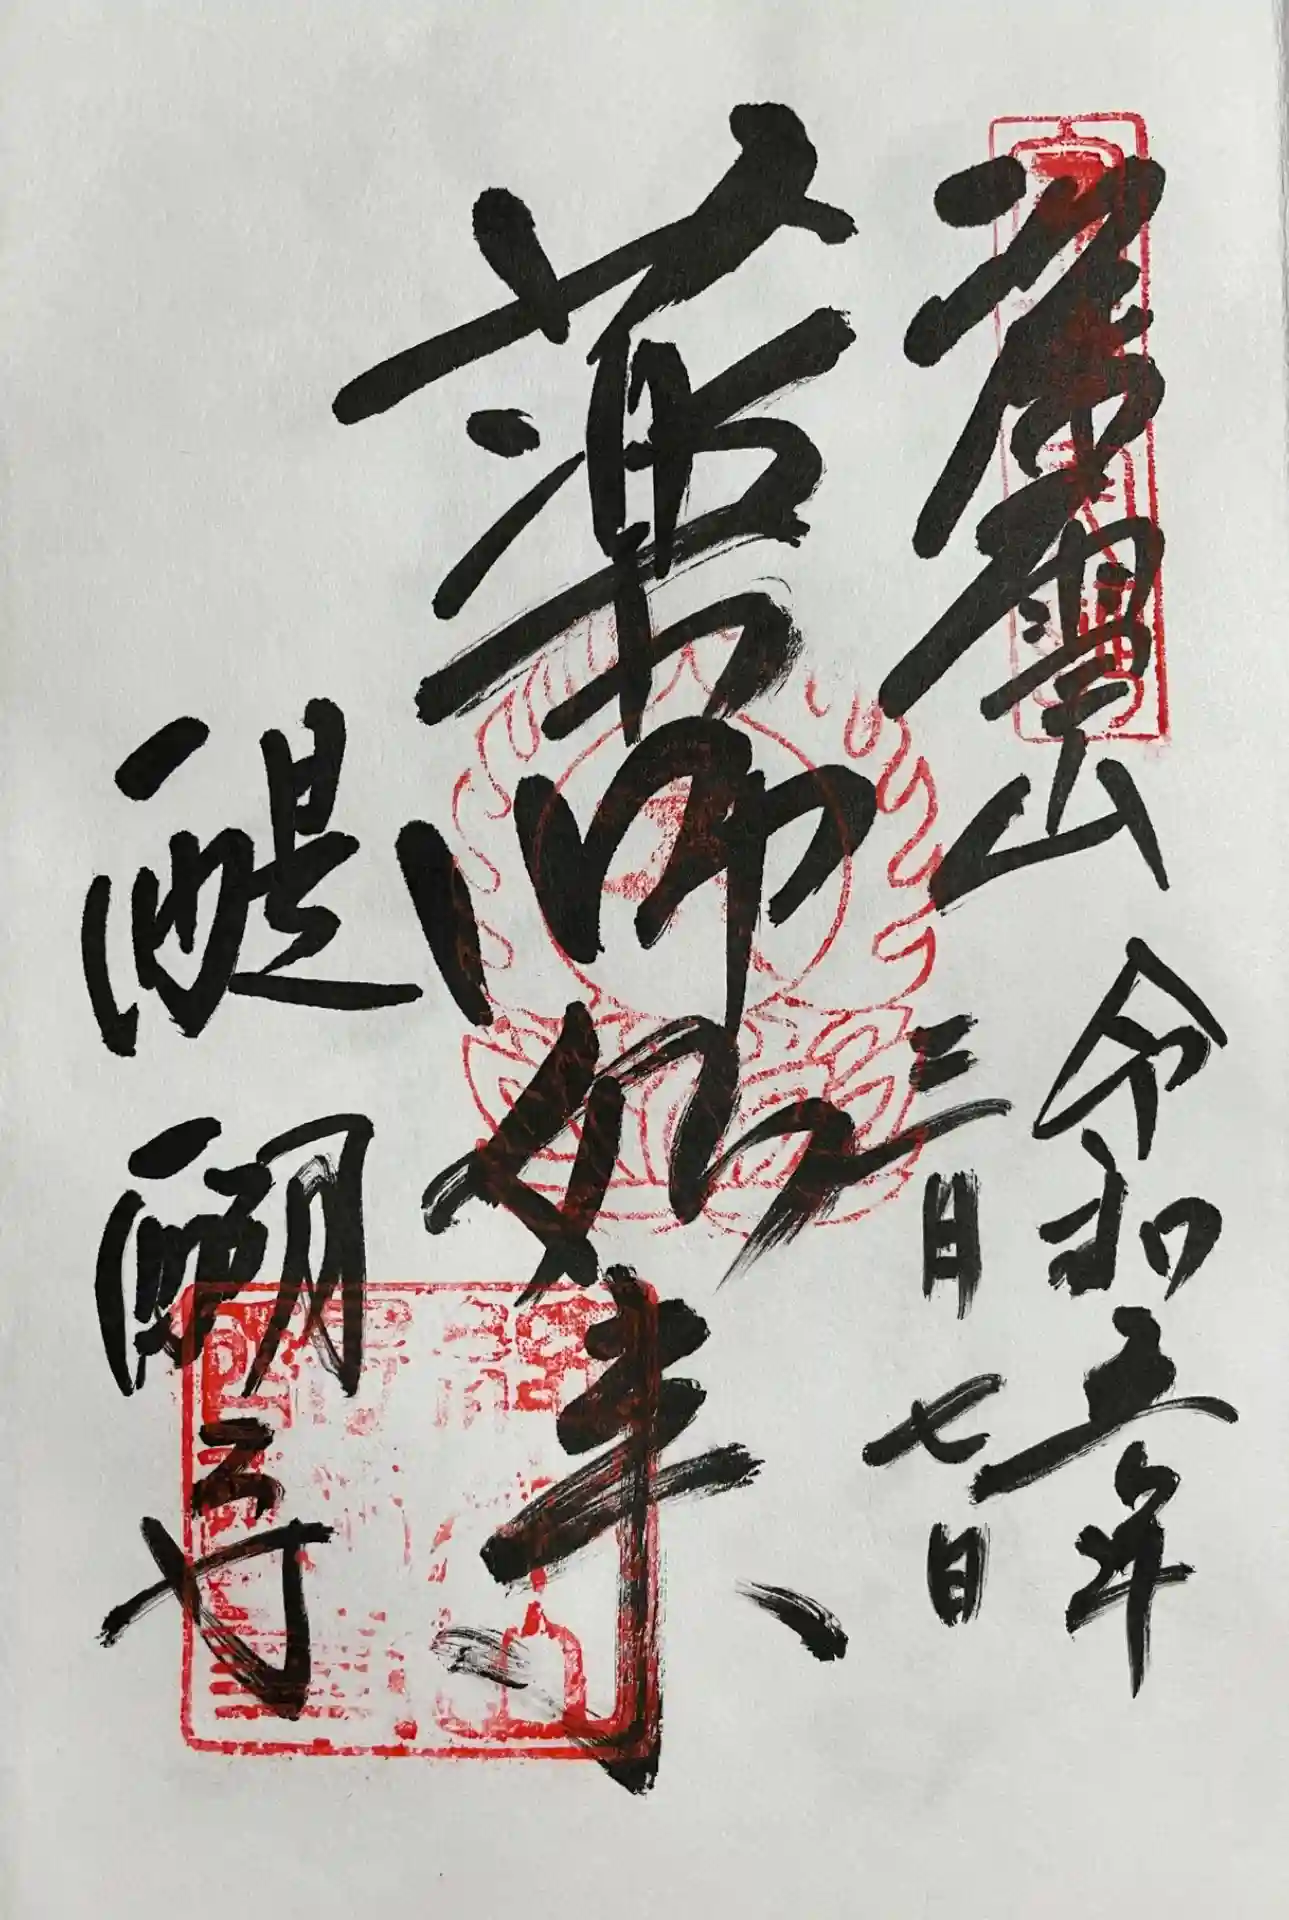 雲山
令和五年
三月七日
薬師如来
醍醐寺